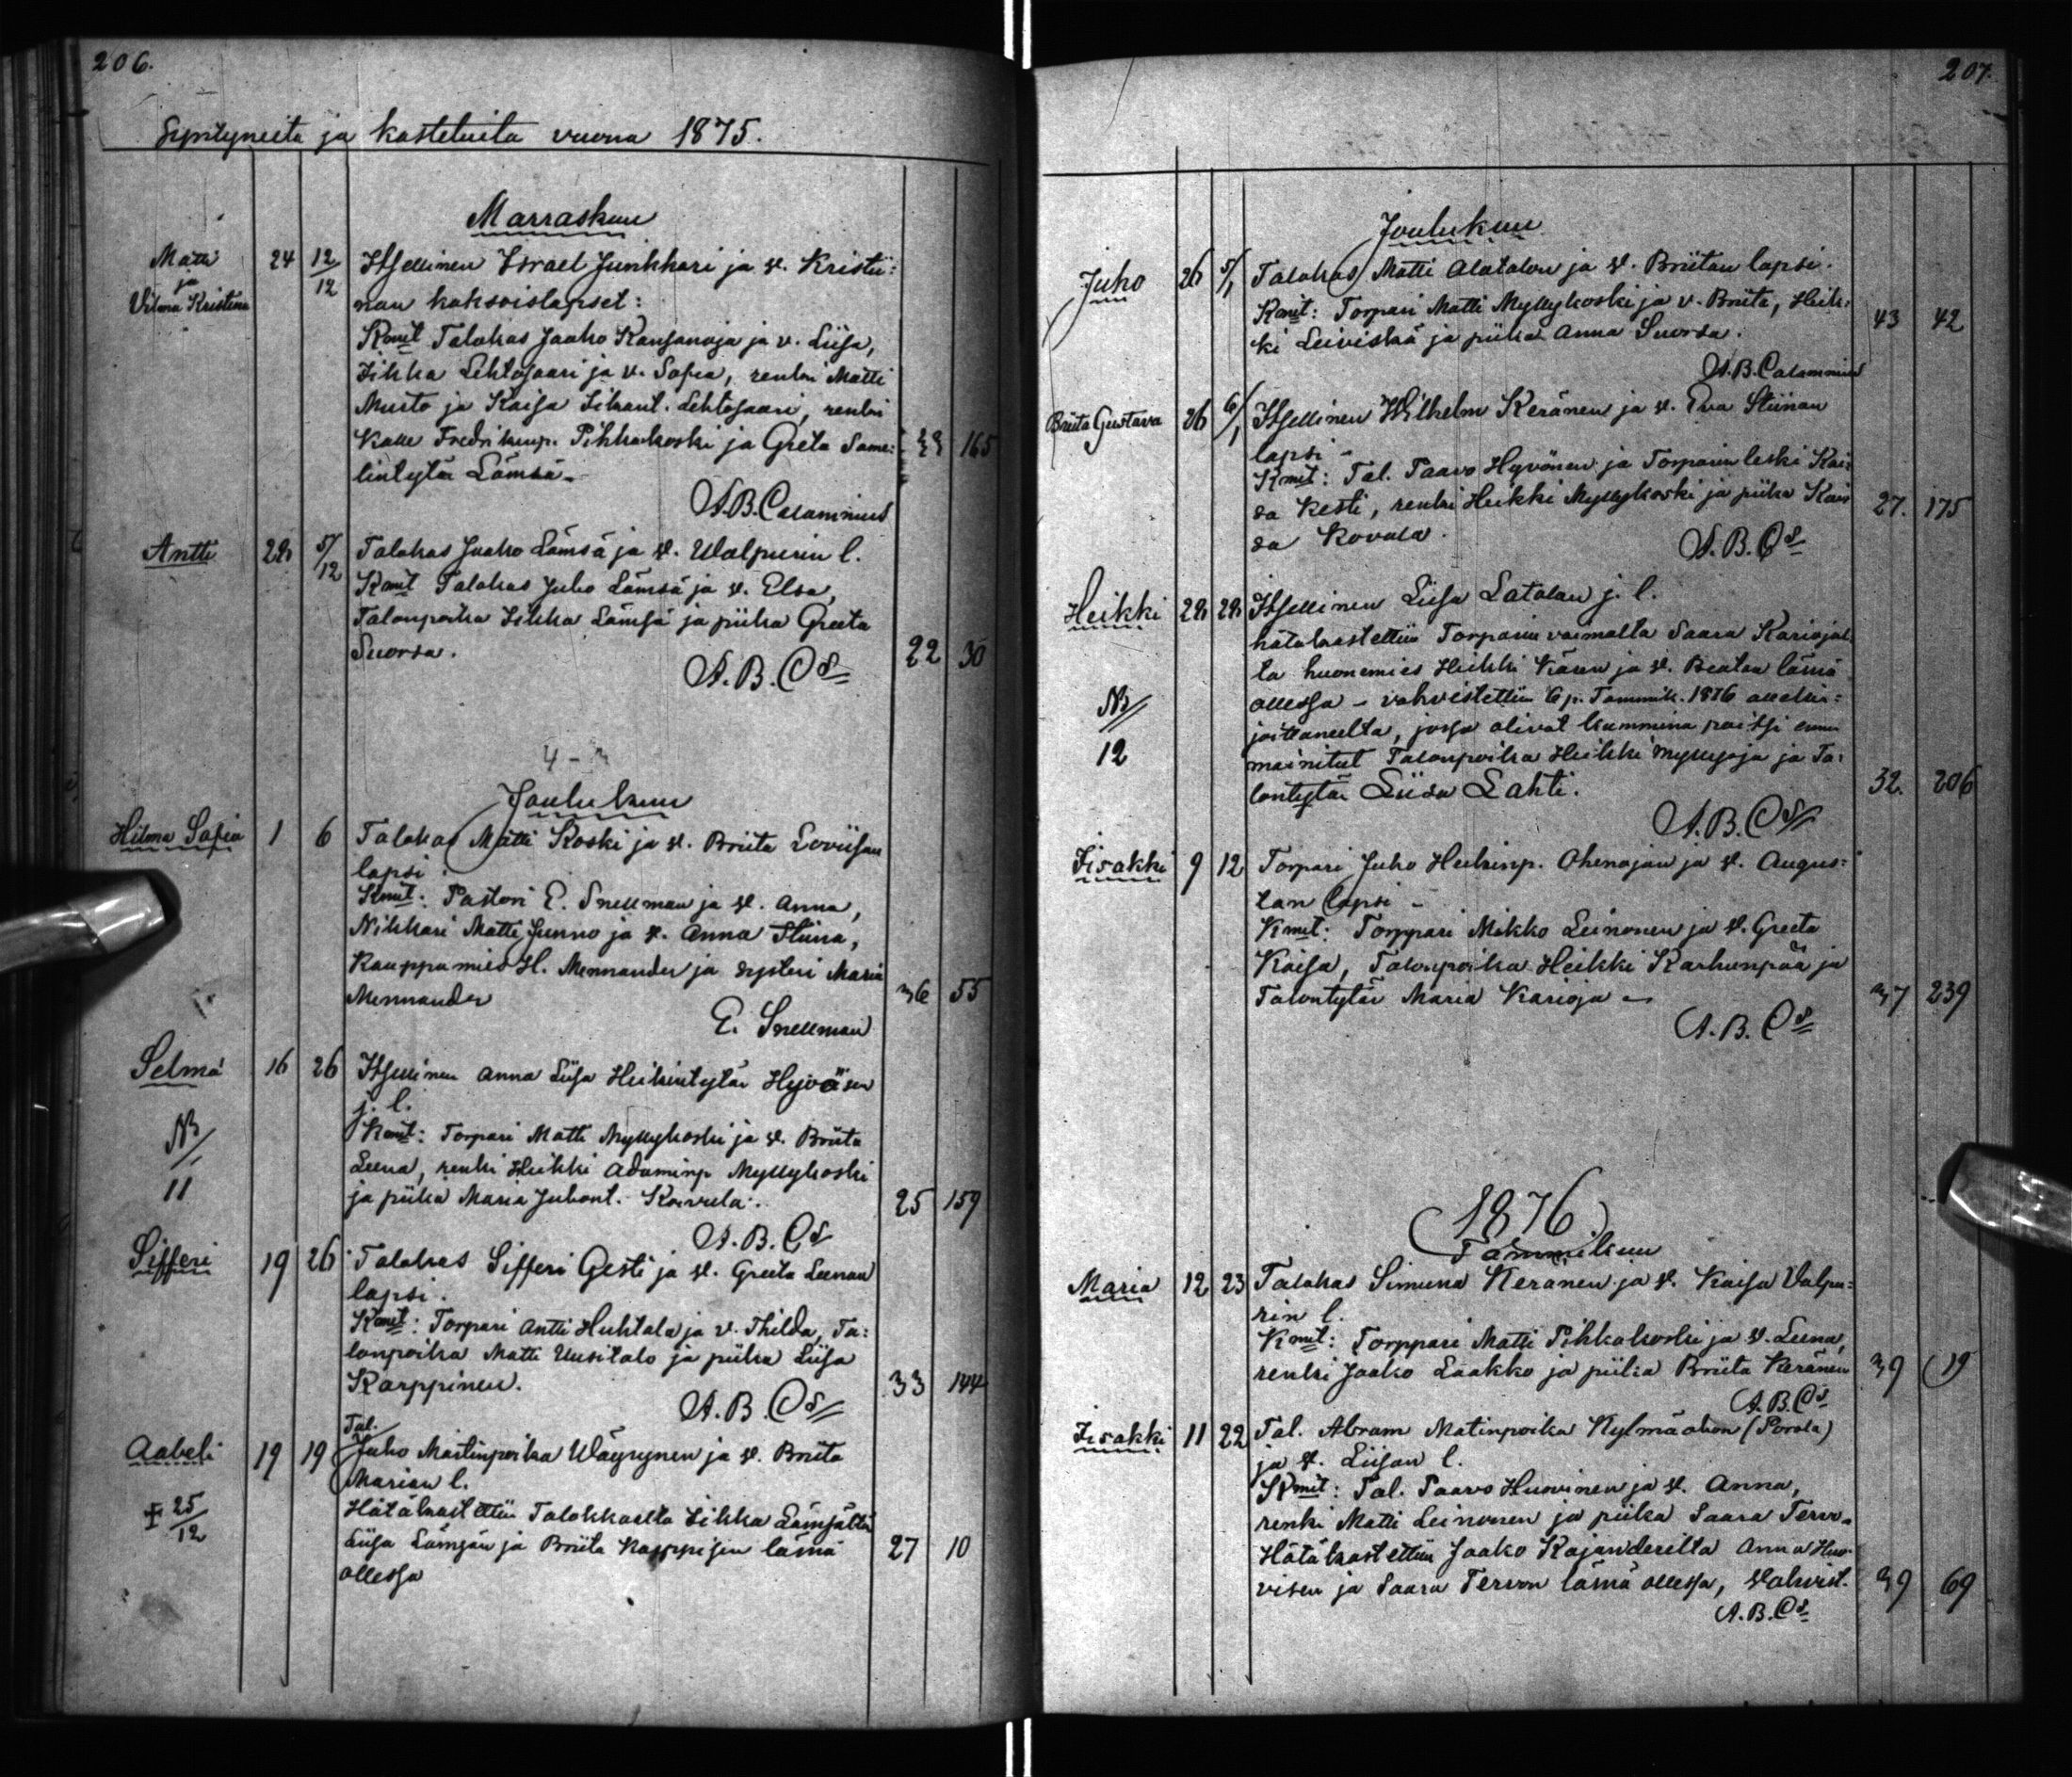 206.
Syntyneitä ja kastetuita vuonna 1875.
Marraskuu
Matti ja Vilma Kristina 24 12/12 Itsellinen Israel Junkkari ja v. Kristii=
nan kaksoislapset:
Kmit Talokas Jaako Kansanoja ja v. Liisa,
Iikka Lehtosaari ja v. Sofia, renki Matti
Musto ja Kaisa Iikant. Lehtosaari, renki
Kalle Fredrikinp. Pihkakoski ja Greta Same=
lintytär Lämsä. 165
A.B. Calamnius
Antti 28 5/12 Talokas Jaako Lämsä ja v. Walpurin l.
Kmit Talokas Juho Lämsä ja v. Elsa,
Talonpoika Iikka Lämsä ja piika Greeta
Suorsa. 22 30
A.B.Cs
Joulukuu
Hilma Sofia 1 6 Talokas Matti Koski ja v. Briita Loviisan
lapsi.
Kmit: Pastori E. Snellman ja v. Anna,
Nikkari Matti Junno ja v. Anna Stiina,
Kauppamies H. Mennander ja systeri Maria
Mennander 36 55
E. Snellman
Selma 16 26 Itsellinen Anna Liisa Heikintytär Hyväsen
j. l.
Nr/11 Kmit: Torpari Matti Myllykoski ja v. Briita
Leena, renki Heikki Adaminp Myllykoski
ja piika Maria Juhont. Koivula. 25 159
A.B.Cs
Sifferi 19 26 Talokas Sifferi Gesti ja v. Greeta Leenan
lapsi.
Kmit: Torpari Antti Huhtala ja v. Thilda, Ta=
lonpoika Matti Uusitalo ja piika Liisa
Karppinen. 33 144
A.B.Cs
Aabeli 19 19 Tal. Juho Martinpoika Wäyrynen ja v. Briita
Marian l.
† 25/12 Hätäkastettiin Talokkaalta Iikka Lämsältä
Liisa Lämsän ja Briita Karppisen läsnä 27 10
ollessa
207.
Joulukuu
Juho 26 5/1 Talokas Matti Alatalon ja v. Briitan lapsi.
Kmit: Torpari Matti Myllykoski ja v. Briita, Heik=
ki Leiviskä ja piika Anna Suorsa. 43 42
A.B. Calamnius
Briita Gustava 26 6/1 Itsellinen Wilhelm Keränen ja v. Eva Stiinan
lapsi -
Kmit: Tal. Paavo Hyvönen ja Torparin leski Kai=
sa Kesti, renki Heikki Myllykoski ja piika Kai
sa Kovala. 27. 175
A.B.Cs
Heikki 28 28 Itsellinen Liisa Latolan j. l.
hätäkastettiin Torparin vaimolta Saara Kariojal
ta huonemies Heikki Kären ja v. Beatan läsnä
ollessa - vahvistettiin 6 p. Tammik. 1876 allekir=
Nr/12 joittaneelta, jossa olivat kummina paitsi ennen
mainitut Talonpoika Heikki Myllyoja ja Ta=
lontytär Liisa Lahti. 32. 206
A.B.Cs
Iisakki 9 12 Torpari Juho Heikinp. Ahenojan ja v. Augus=
tan lapsi -
Kmit: Torppari Mikko Leinonen ja v. Greeta
Kaisa, Talonpoika Heikki Karhunpää ja
Talontytär Maria Karioja - 37 239
A.B.Cs
1876
Tammikuu
Maria 12 23 Talokas Simuna Keränen ja v. Kaisa Valpu=
rin l.
Kmit: Torppari Matti Pihkakoski ja v. Leena,
renki Jaako Laakko ja piika Briita Keränen 39 19
A.B.Cs
Iisakki 11 22 Tal. Abram Matinpoika Kylmäahon (Porola)
ja v. Liisan l.
Kmit: Tal. Paavo Huovinen ja v. Anna,
renki Matti Leinonen ja piika Saara Tervo.
Hätäkastettiin Jaako Kajanderilta Anna Huo-
visen ja Saara Tervon läsnä ollessa, vahvist. 39 69
A.B.Cs